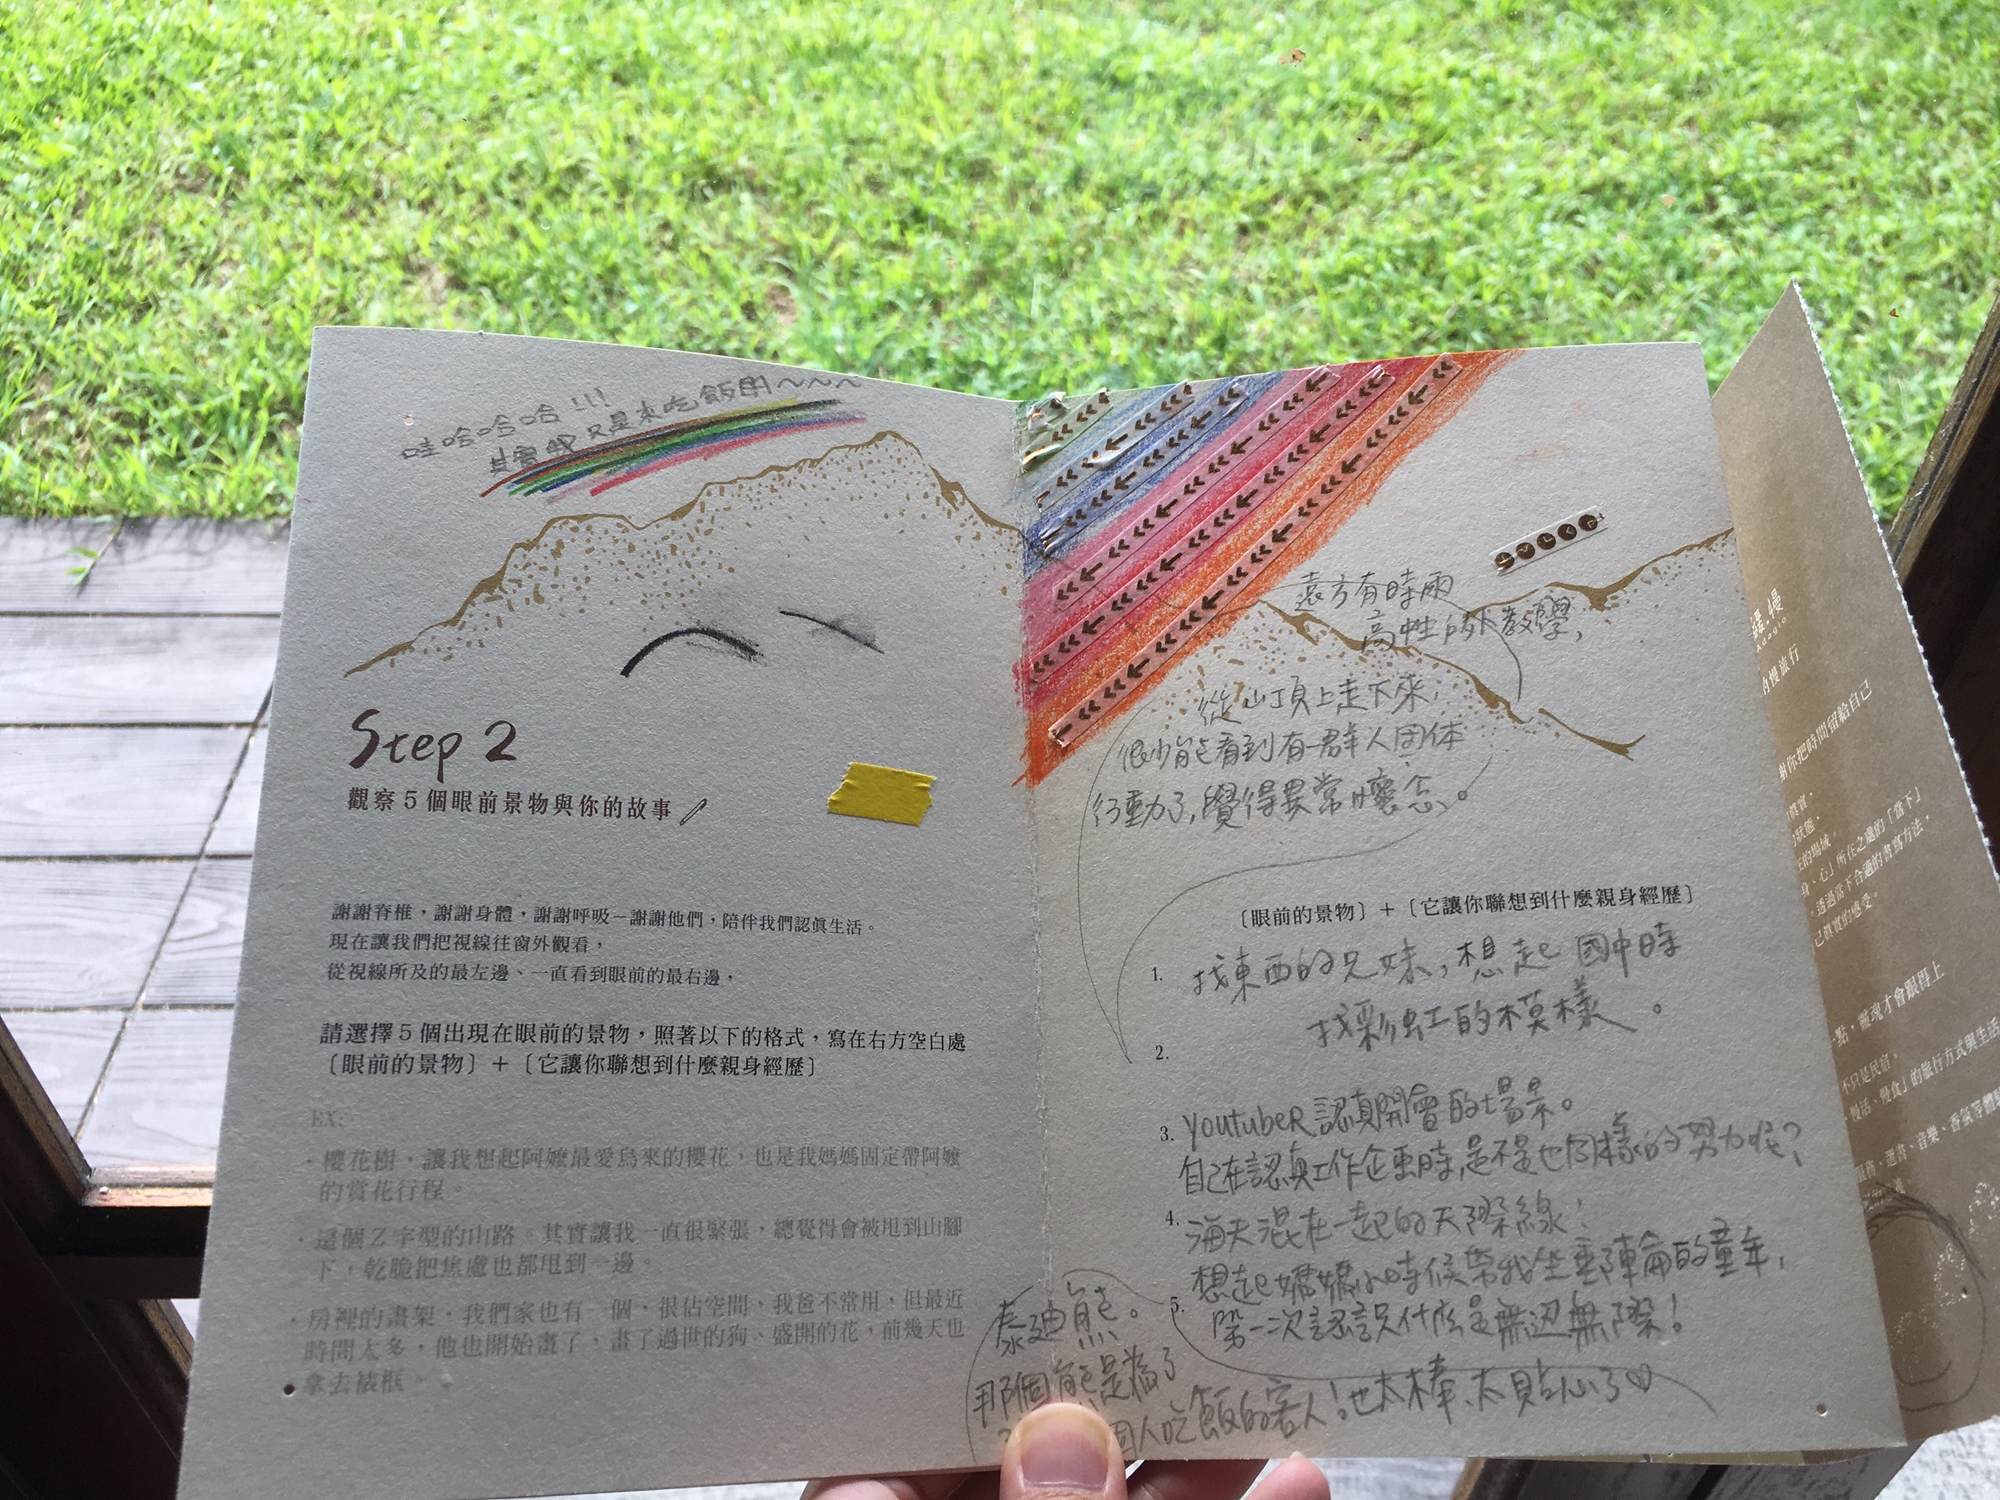 哇哈哈哈!!!
其實我只是來吃飯用~~~
Step 2
觀察5個眼前景物與你的故事
謝謝脊椎，謝謝身體，謝謝呼吸－謝謝他們，陪伴我們認真生活。
現在讓我們把視線往窗外觀看，
從視線所及的最左邊、一直看到眼前的最右邊，
請選擇5個出現在眼前的景物，照著以下的格式，寫在右方空白處
〔眼前的景物〕＋〔它讓你聯想到什麼親身經歷〕
EX:
·櫻花樹，讓我想起阿嬤最愛烏來的櫻花，也是我媽媽固定帶阿嬤
的賞花行程。
·這個Z字型的山路。其實讓我一直很緊張，總覺得會被甩到山腳
下，乾脆把焦慮也都甩到一邊。
·房裡的畫架，我們家也有一個，很佔空間，我爸不常用，但最近
時間太多，他也開始畫了，畫了過世的狗、盛開的花，前幾天也
拿去裱框。
遠方有時雨
教學,
從山頂上走下來,
很少能看到有一群人团体
行動了,覺得異常懷念。
〔眼前的景物〕＋〔它讓你聯想到什麼親身經歷〕
1. 找東西的兄妹,想起國中時
找彩虹的模樣。
2.
3. youtubeR認真開會的場景。
自己在認真工作企劃時,是不是也同樣的努力呢?
4. 海天混在一起的天際線!
想起媽媽小時候帶我坐的童年,
5. 第一次認識什麼是無边無際!
泰迪熊。
那個熊是為了
個人吃飯的客人!也太棒、太貼心了♡
緩.慢
Adagio
慢旅行
謝你把時間留給自己
狀態。
在的場域。
身、心」所在之處的「當下」
，透過當下合適的書寫方法，
己真實的感受。
一點，靈魂才會跟得上
不只是民宿。
慢活、慢食」的旅行方式與生活
、選書、音樂、香氣等體驗